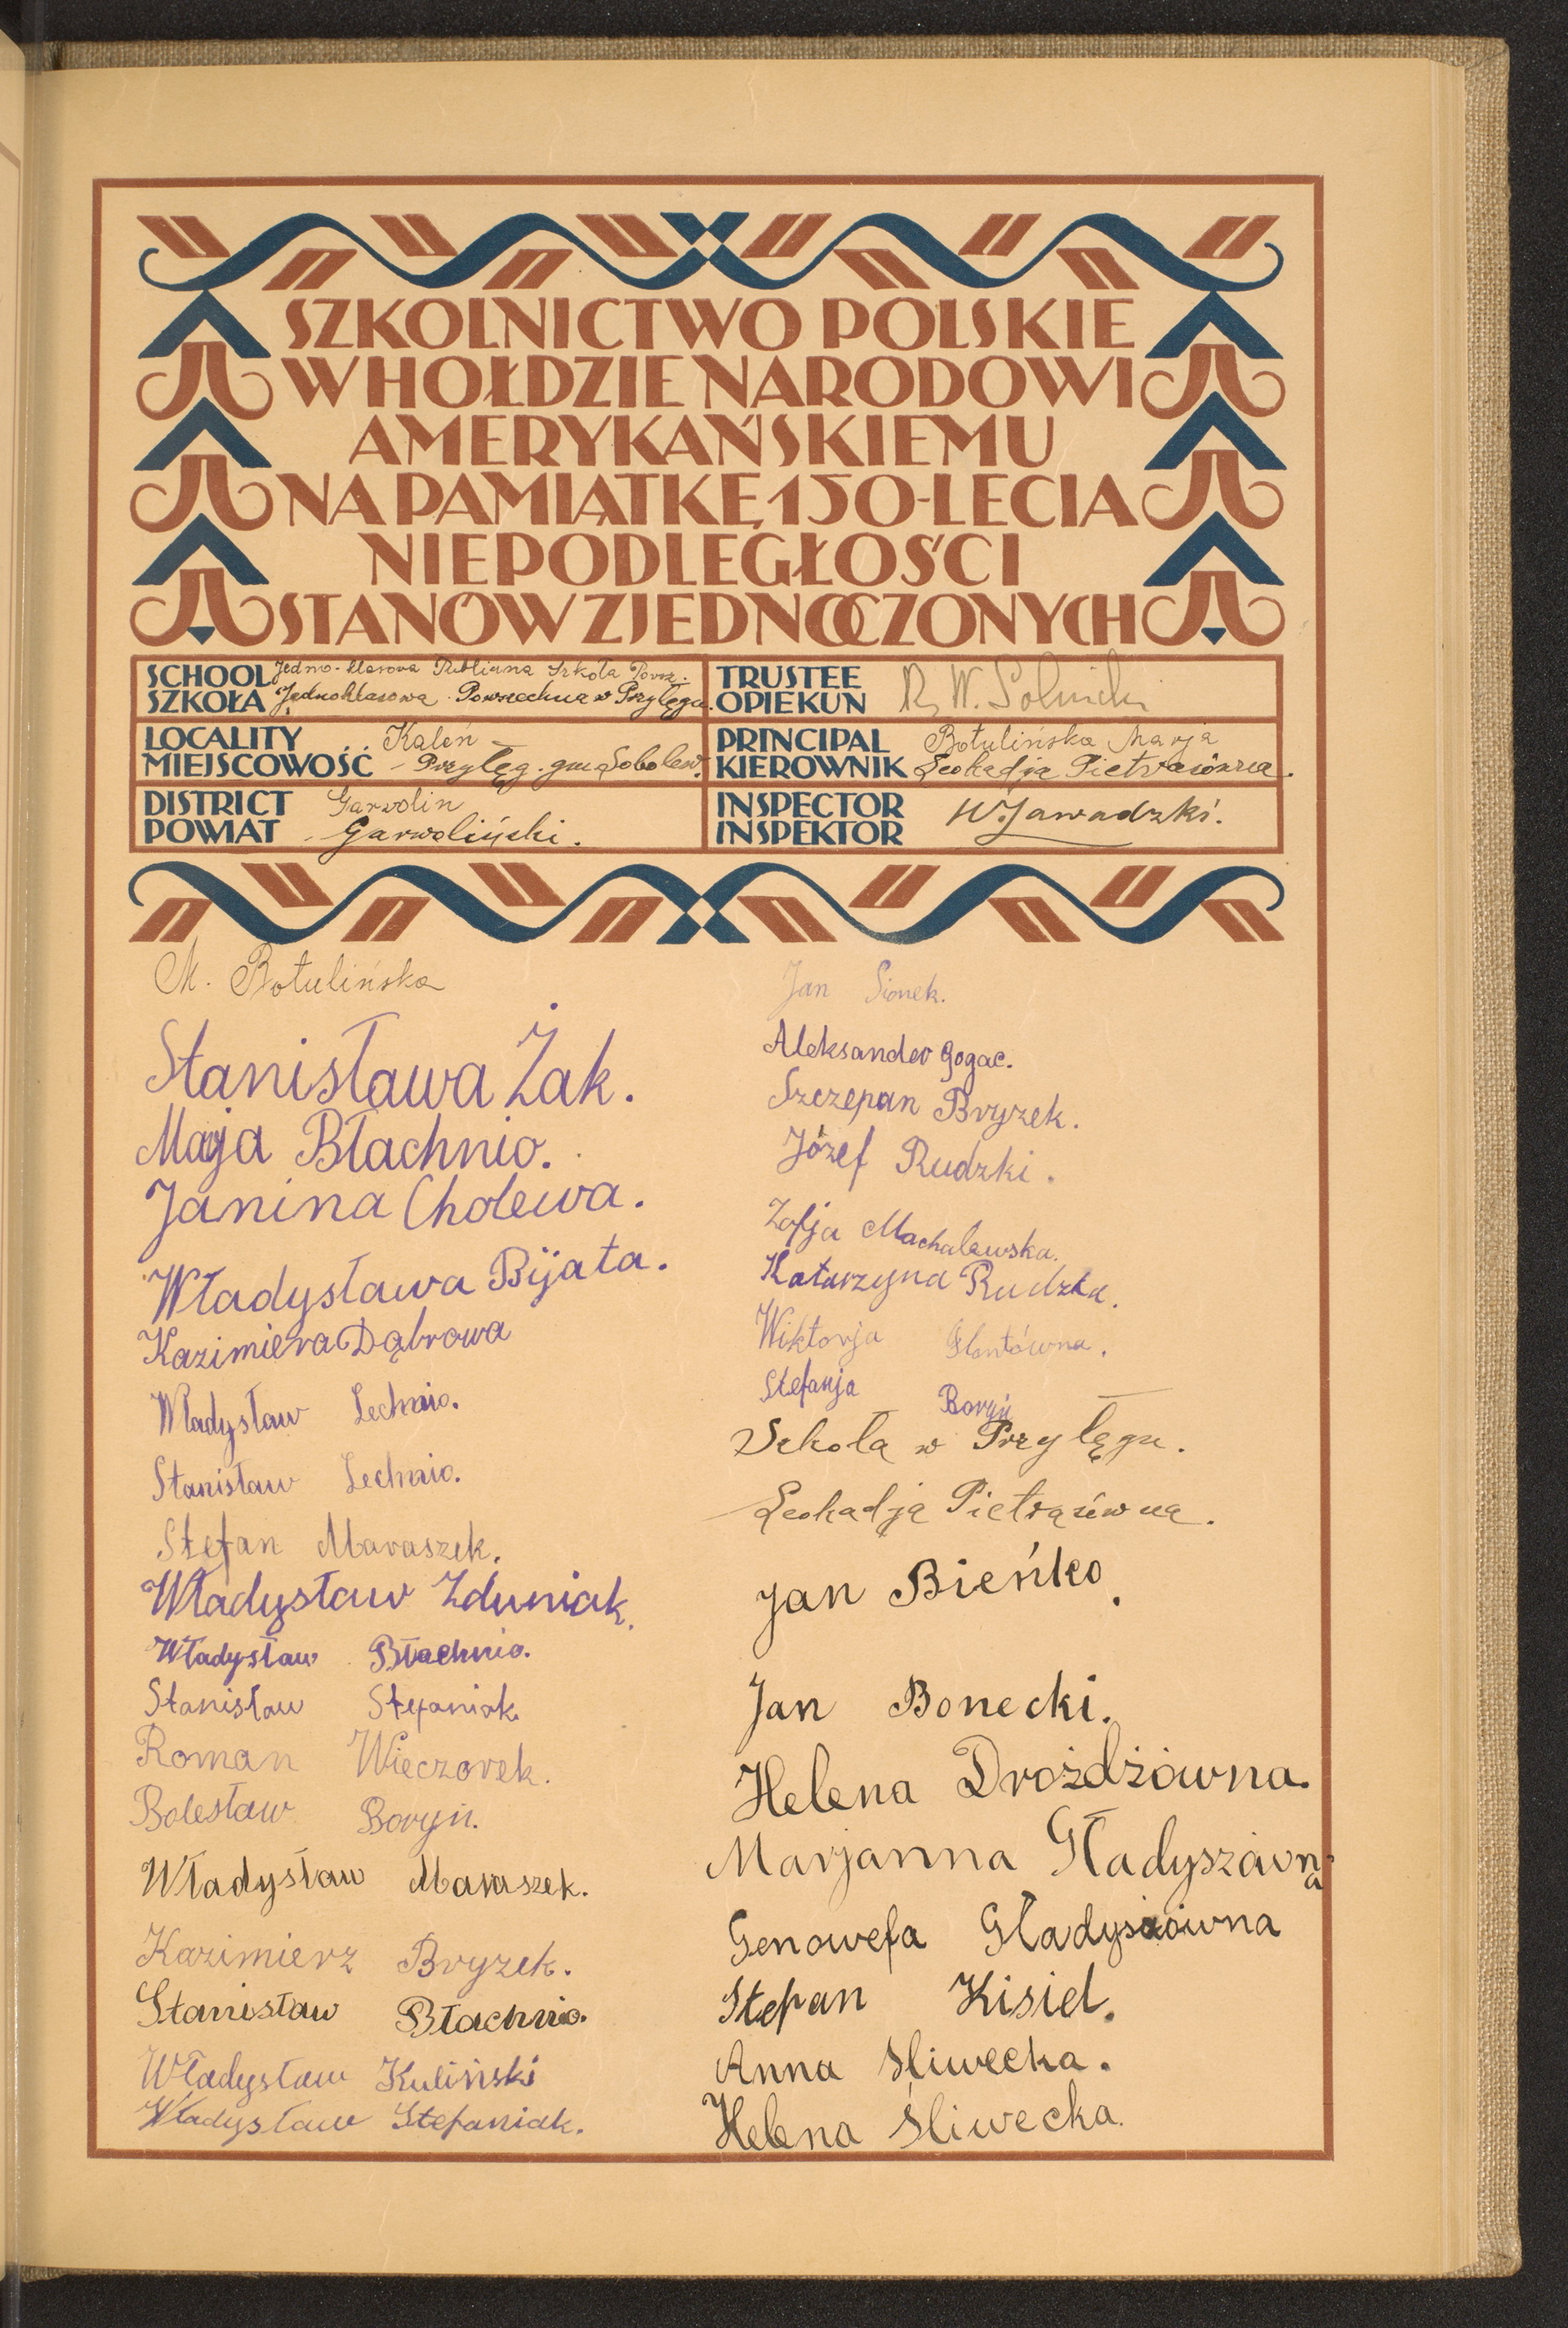 SZKOLNICTWO POLSKIE
W HOŁDZIE NARODOWI
AMERYKAŃSKIEMU
NA PAMIĄTKĘ 150-LECIA
NIEPODLEGŁOŚCI
STANÓW ZJEDNOCZONYCH
SCHOOL Jedno-klasowa Publiczna Szkoła Powsz.
SZKOŁA Jednoklasowa Powszechna w Przyłęgu.
TRUSTEE
OPIEKUN
LOCALITY Kaleń
MIEJSCOWOŚĆ Przyłęg. gm. Sobolew.
PRINCIPAL Botulińska Marja
KIEROWNIK Leokadja Pietrasówna.
DISTRICT Garwolin
POWIAT Garwoliński.
INSPECTOR
INSPEKTOR W. Zawadzki.
M. Botulińska
Stanisława Żak.
Marja Błachnio.
Janina Cholewa.
Władysława Bijata.
Kazimiera Dąbrowa
Władysław Lechnio.
Stanisław Lechnio.
Stefan Maraszek.
Władysław Zduniak.
Władysław Błachnio.
Stanisław Stefaniak.
Roman Wieczorek.
Bolesław Boryń.
Władysław Maraszek.
Kazimierz Bryzek.
Stanisław Błachnio.
Władysław Kuliński
Władysław Stefaniak.
Jan Sionek.
Aleksander Gogac.
Szczepan Bryzek.
Józef Rudzki.
Zofja Machalewska.
Katarzyna Rudzka.
Wiktorja
Stefanja Boryń
Szkoła w Przyłęgu.
Leokadja Pietrasówna.
Jan Bieńko.
Jan Bonecki.
Helena Drożdżówna.
Marjanna Gładyszówna
Genowefa Gładyszówna
Stefan Kisiel.
Anna Śliwecka.
Helena Śliwecka.